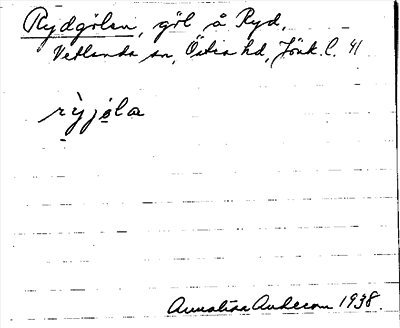 Rydgölen, göl å Ryd,
Vetlanda sn, Östra hd, Jönk. l. 41
rỳjøla
Annalisa Anderson 1938